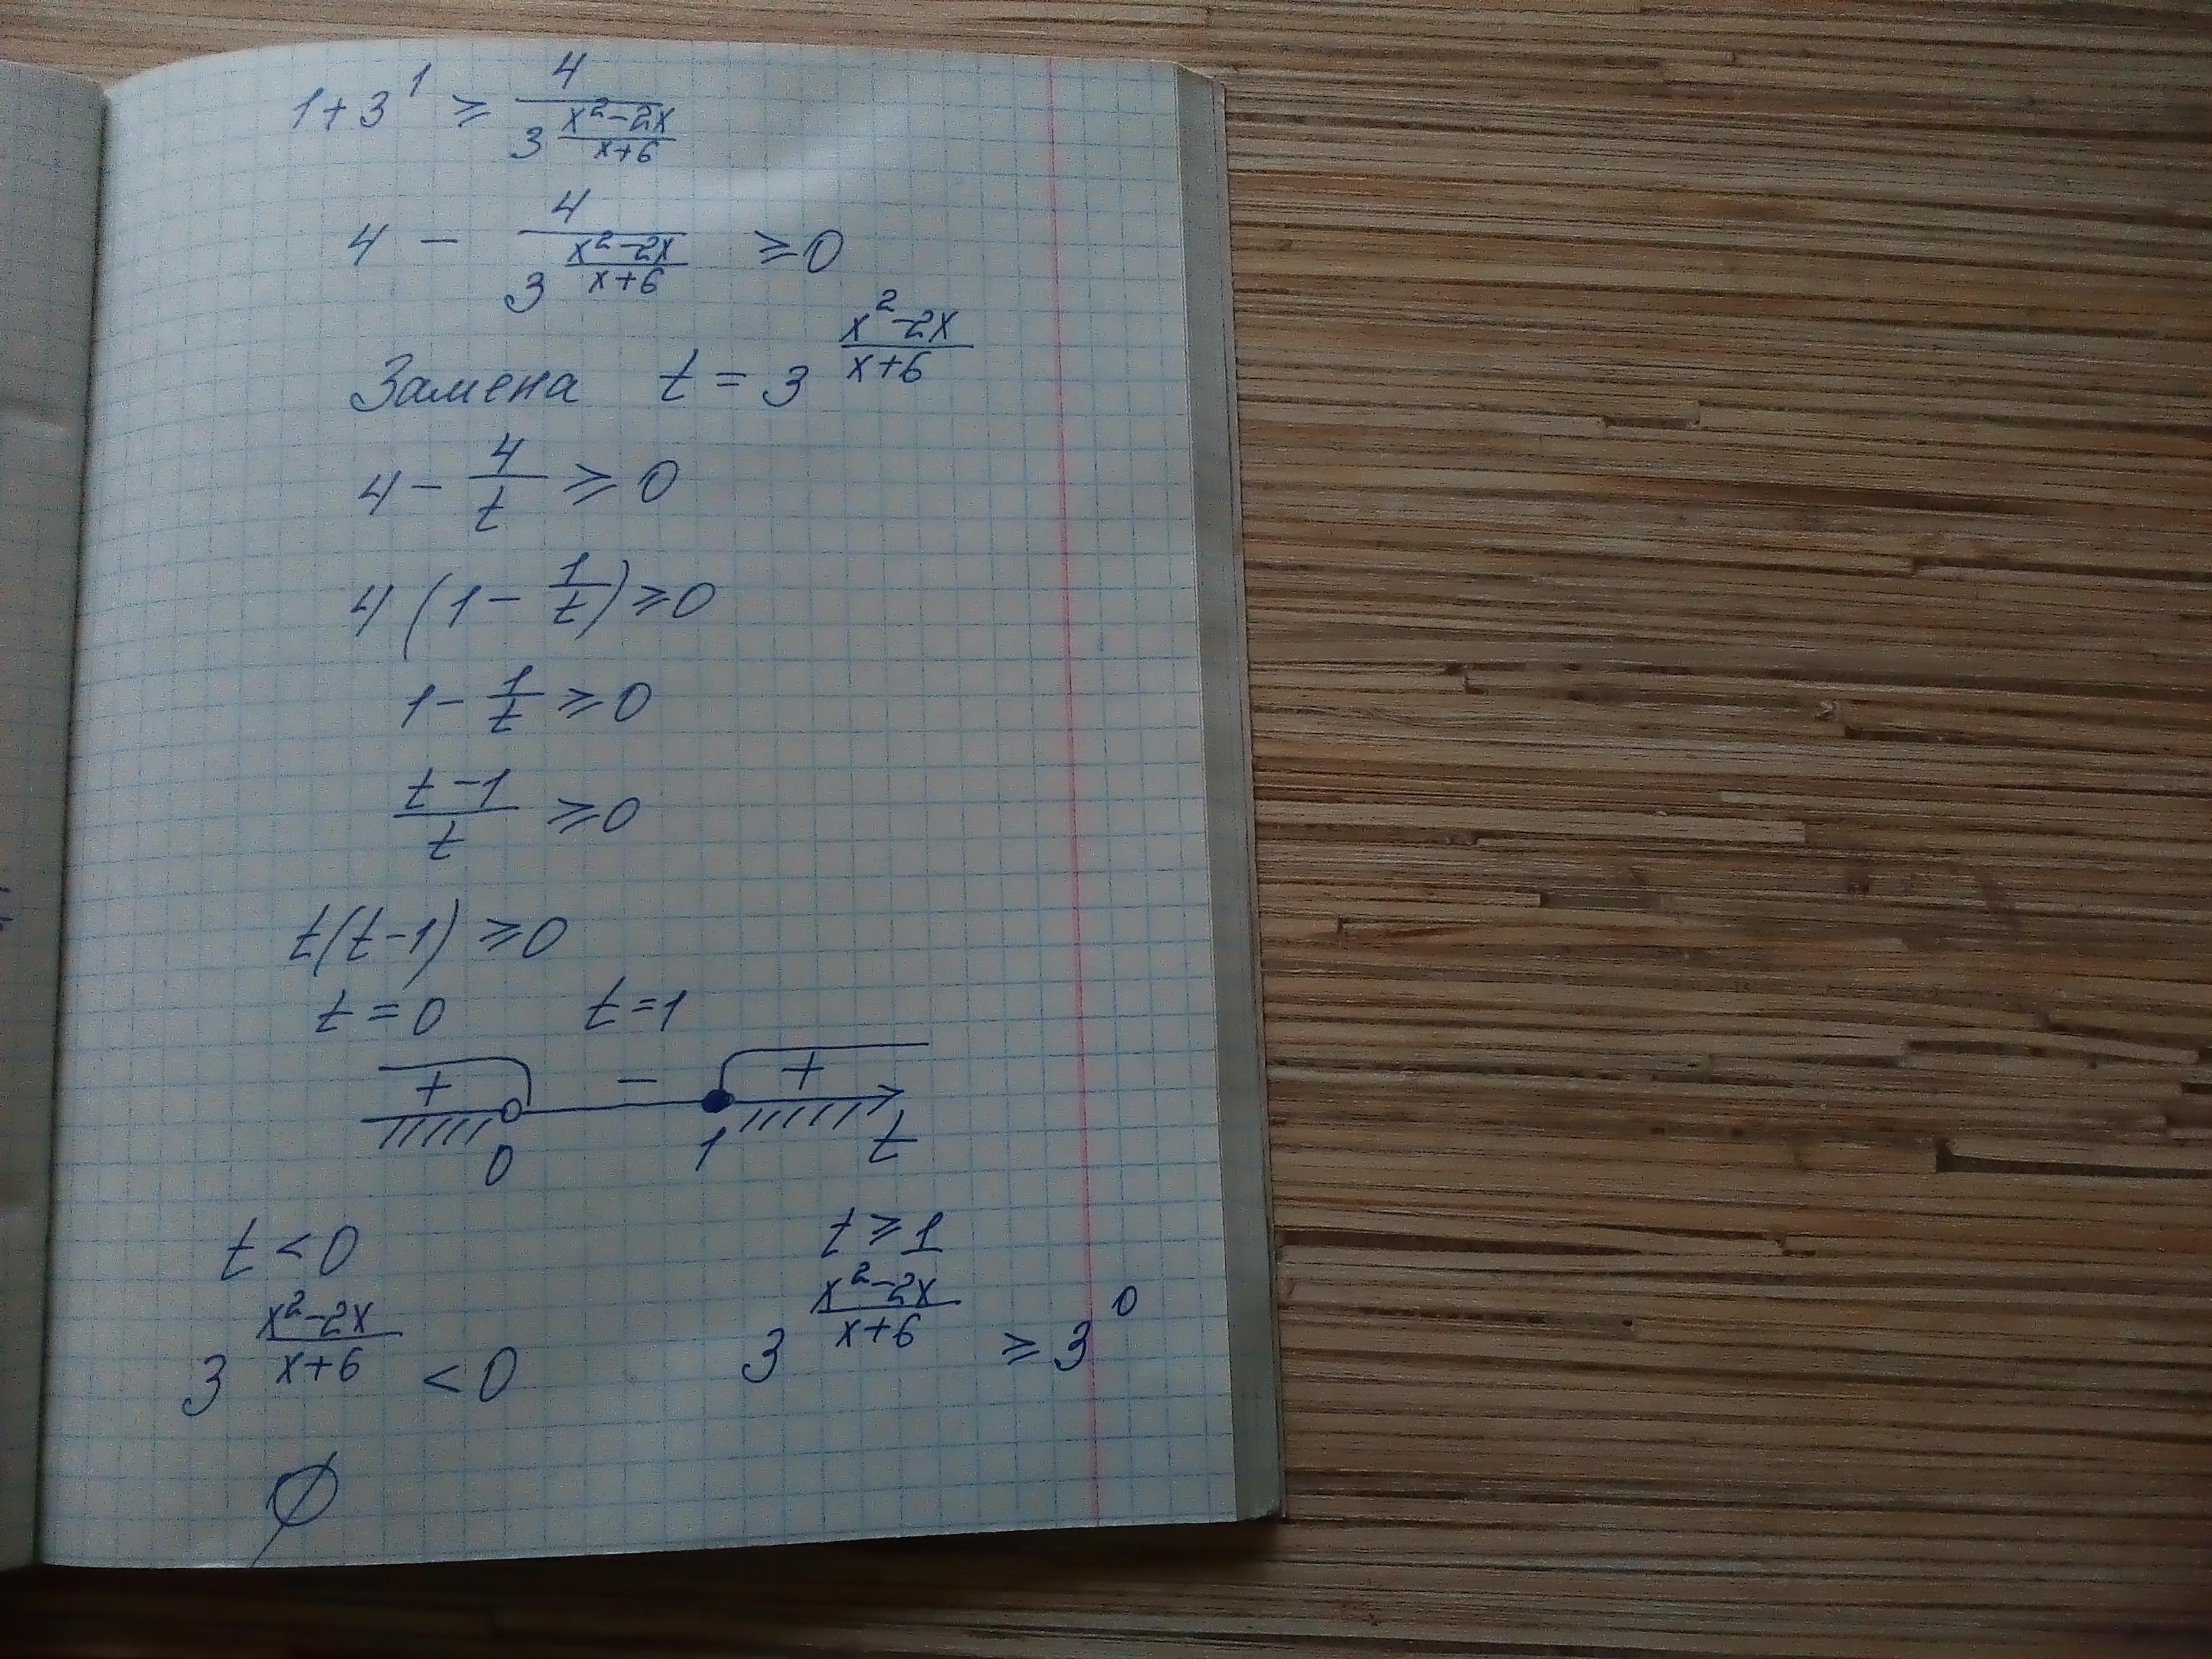 1+3^1 ≥ 4/(3^((x^2-2x)/(x+6)))
4 - 4/(3^((x^2-2x)/(x+6))) ≥0
Замена t = 3^((x^2-2x)/(x+6))
4 - 4/t ≥ 0
4(1 - 1/t) ≥0
1 - 1/t ≥0
(t-1)/t ≥0
t(t-1) ≥0
t=0 t=1
+ − +
0 1 t
t <0 t ≥1
3^((x^2-2x)/(x+6)) <0 3^((x^2-2x)/(x+6)) ≥ 3^0
∅